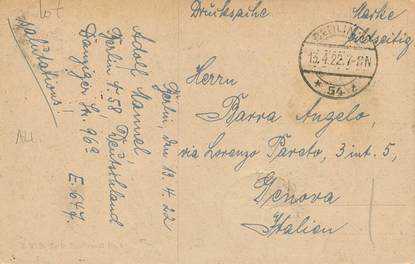 lot
Salutations!
Drucksache
Marke Bildseitig
BERLIN
13.4.22.7-8N
* 54
Berlin, den 13.4.22
Adolf Mannel
Berlin N. 58 Deutschland
Danziger Str. 96a
E. 647.
Herrn
Barra Angelo,
via Lorenzo Pareto, 3 int. 5,
Genova
Italien